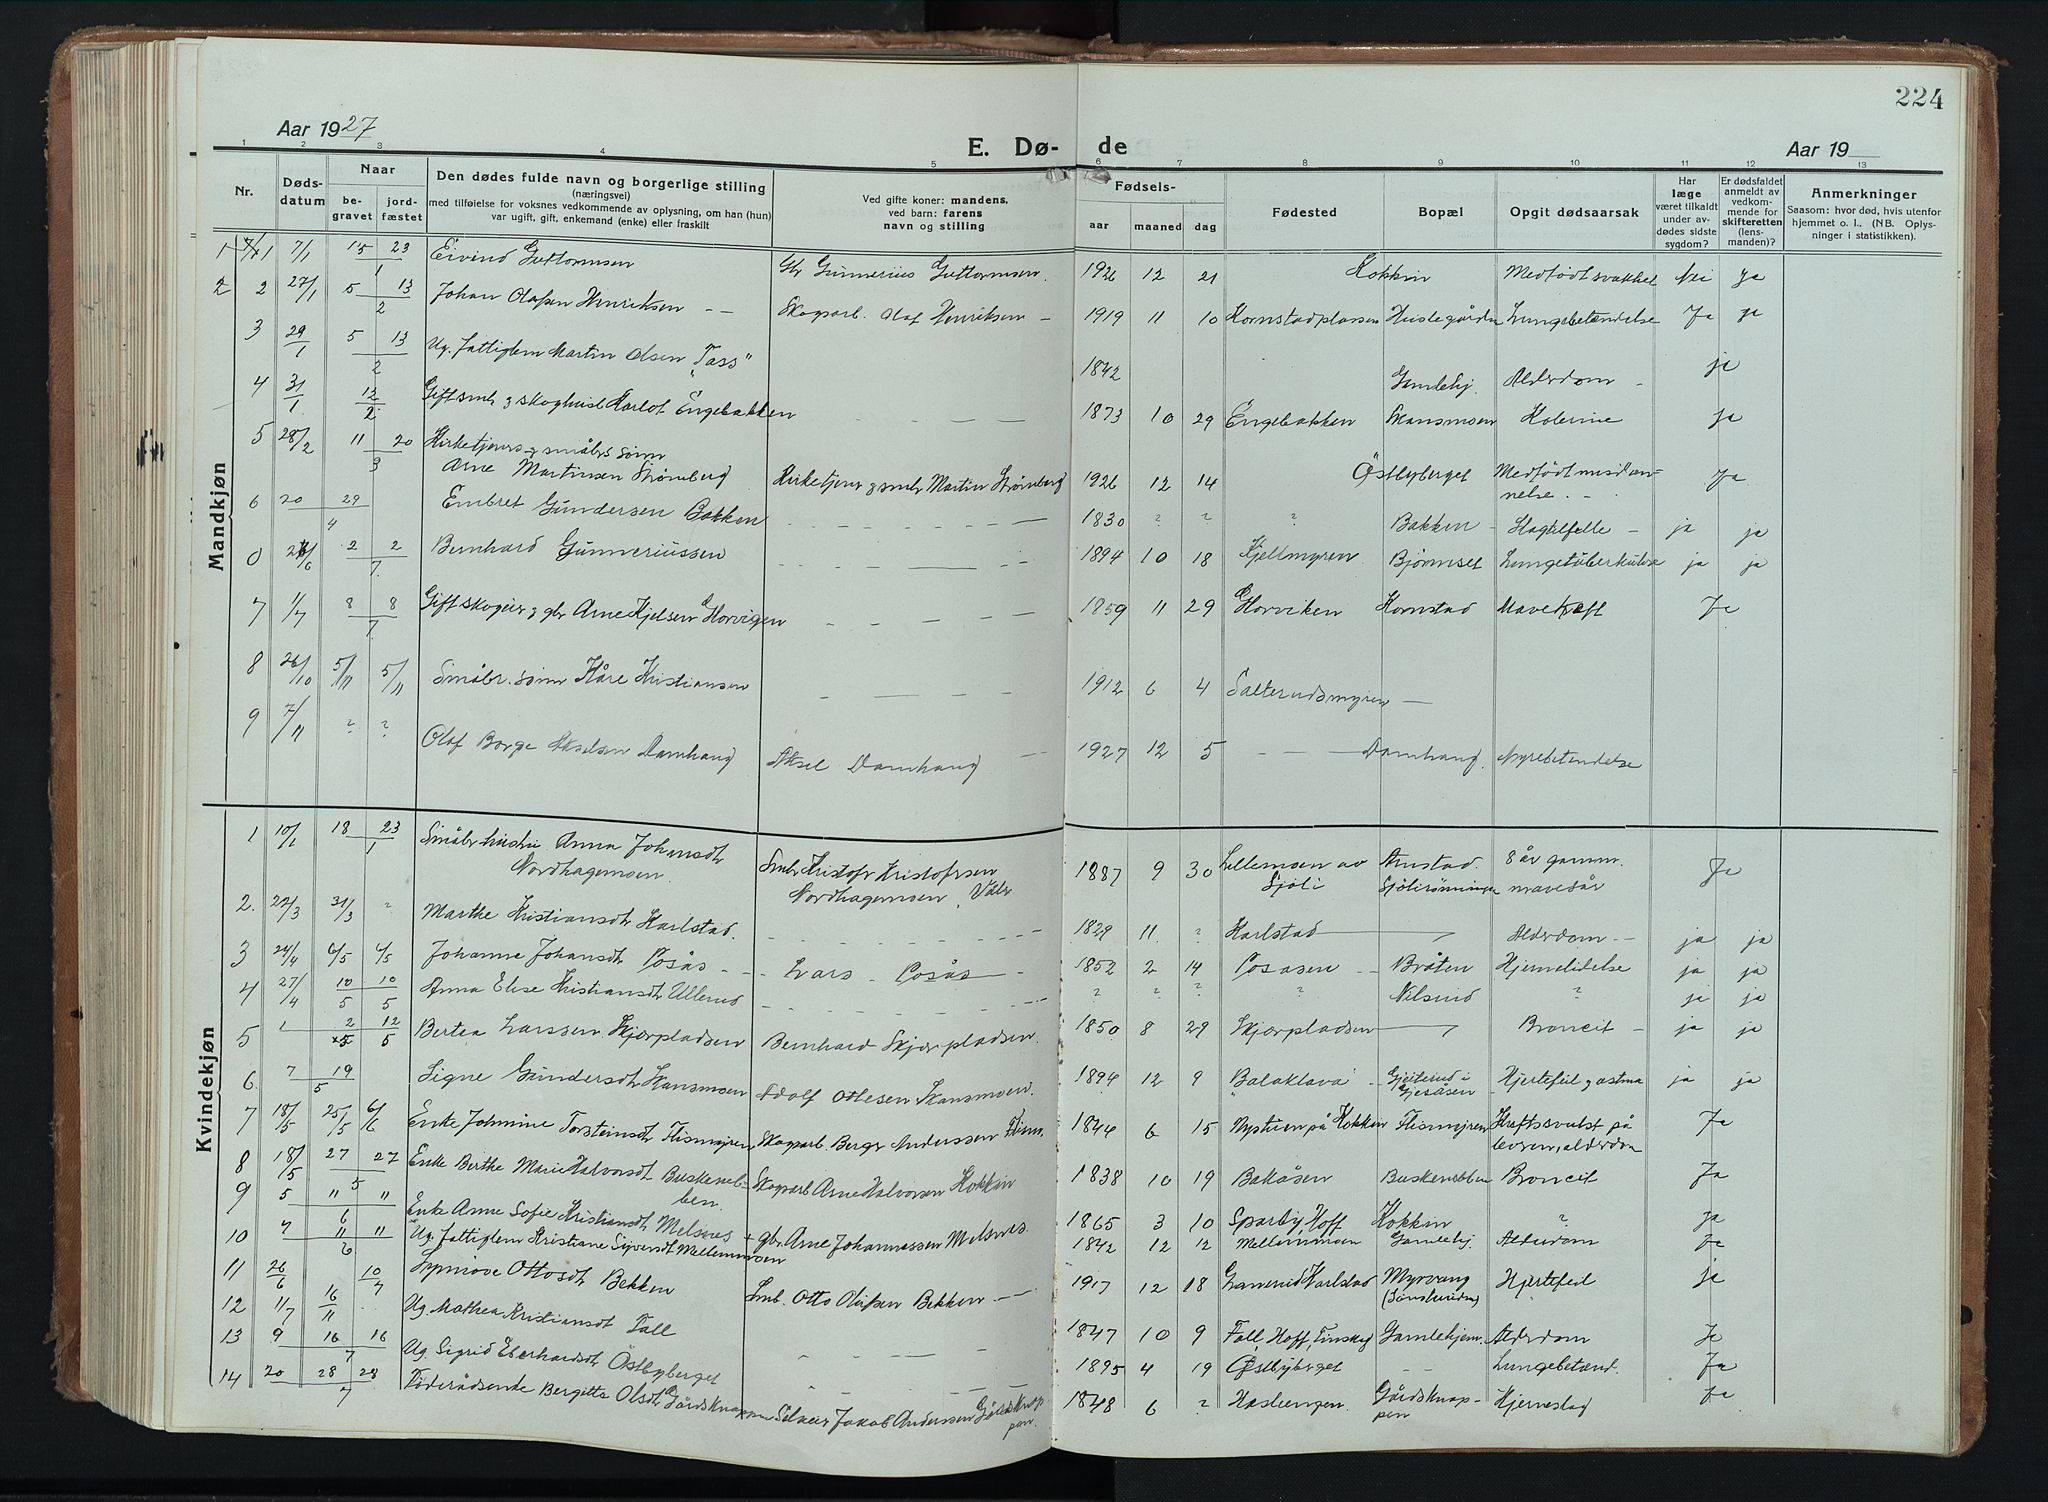 224
Aar 1927
E. Dø- de
Aar 19
1 2 3 4 5 6 7 8 9 10 11 12 13
Nr. Døds-datum Naar be-gravet jord-fæstet
Den dødes fulde navn og borgerlige stilling
(næringsvei)
med tilføielse for voksnes vedkommende av oplysning, om han (hun)
var ugift, gift, enkemand (enke) eller fraskilt
Ved gifte koner: mandens,
ved barn: farens
navn og stilling
Fødsels-
aar maaned dag
Fødested
Bopæl
Opgit dødsaarsak
Har læge været tilkaldt under av-dødes sidste sygdom?
Er dødsfaldet anmeldt av vedkom-mende for skifteretten (lens-manden)?
Anmerkninger
Saasom: hvor død, hvis utenfor
hjemmet o. l., (NB. Oplys-
ninger i statistikken).
Mandkjøn
1 7/1 15 23/1 Eivind Guttormsen Gbr Gunnerius Guttormsen 1926 12 21 Kokkin Medfødt svakhet Nei Ja
2 2 27/1 5 13/2 Johan Olafsen Henriksen Skogsarb. Olaf Henriksen 1919 11 10 Kornstadplassen Huslegården Lungebetændelse Ja ja
3 29/1 5 13/2 Ug. fattiglem Martin Olsen "Tass" 1842 Gamlehj. Alderdom ja
4 31/1 12/2 Gift smbr & skoghusl Karlot Engebakken 1873 10 29 Engebakken Skansmoen Kolerine ja
5 28/2 11 20/3 Kirketjeners & småbrs sønn
Arne Martinsen Strømberg Kirketjener & smbr Martin Strømberg 1926 12 14 Østbyberget Medfødt misdan-
nelse Ja
6 20 29/4 Embret Gundersen Bakken 1830 ? ? ? Bakken Slagtilfelle ja ja
0 26/6 2 2/7 Bernhard Gunneriussen 1894 10 18 Kjellmyren Bjørnset Lungetuberkulose ja ja
7 1/7 8 8/7 Gift skogeier & gbr Arne Kjelsen Horvigen 1859 11 29 Horviken Kornstad Mavekreft Ja
8 26/10 5/11 5/11 Småbr. sønn Kåre Kristiansen 1912 6 4 Sætterudsmyren
9 7/11 ? ? Olaf Borge Akselsen Damhaug Aksel Damhaug 1927 12 5 Damhaug Nyrebetendelse
Kvindekjøn
1 10/1 18 23/1 Småbr hustru Anna Johansdtr
Nordhagemoen Smbr Kristofr Kristofrsen
Nordhagemoen, Våler 1887 9 30 Lillemoen av
Sjøli Arnstad
Sjølirønningen 8 år gamm.
mavesår Ja
2. 22/3 31/3 ? Marthe Kristiansdtr Karlstad 1829 11 ? Karlstad Alderdom ja ja
3 24/4 6/5 6/5 Johanne Johansdtr Posås Lars Posås 1852 2 14 Posåsen Bråten Hjernelidelse ja ja
4 27/4 10/5 10/5 Anna Elise Kristiansdtr Ullerud ? ? ? ? Nilsrud ? ja ja
5 1 2/5 12/5 Bertea Larssen Skjærpladsen Bernhard Skjærpladsen. 1850 8 29 Skjærpladsen Broncit ja ja
6. 7 19/5 Signe Gundersdtr Skansmoen Adolf Ottesen Skansmoen. 1894 12 9 Balaklava Gjeiterud i
Gjesåsen Hjertefeil & astma ja ja
7 18/5 25/5 6/6 Enke Johnnine Torsteinsdtr Flismyren Skogsarb. Berger Anderssen 1844 6 15 Nystuen på Kokkin Flismyren Kreftsvulst på
leveren, alderdom Ja
8 18/5 27 27/5 Enke Berthe Marie Halvorsdtr Buskeneb-
ben. Skogsarb Arne Halvorsen Kokkin 1838 10 19 Bakåsen Buskenebben Broncit Ja
9 5 11 11/6 Enke Anne Sofie Kristiansdtr Melsnes gbr. Arne Johannessen Melsnes. 1865 3 10 Sparby, Hoff Kokkin ? Ja
10 7 11 11/6 Ug. fattiglem Kristiane Sivertsdtr Mellemmoen 1842 12 12 Mellemmoen Gamlehj. Alderdom Ja
11 26/6 10/7 Synnøve Ottosdtr Bekken Smb. Otto Olafsen Bekken 1917 12 18 Granerud Karlstad Myrvang Hjertefeil ja
12 11/7 16/11 Ug. Mathea Kristiansdt Fall 1847 10 9 Fall, Hoff, Finskog Gamlehjem. Alderdom Je
13 9 16 16/7 Ug. Sigrid Eberhardsdtr Østbyberget 1895 4 19 Østbyberget Lungebetænd. Ja
14 20 28 28/7 Føderådsenke Bergitte Olsdtr Gårdsknappen Selveier Jakob Anderssen Gårdsknap-
pen. 1848 6 ? Haslungen. Gårdsknap-
pen Hjerneslag Ja